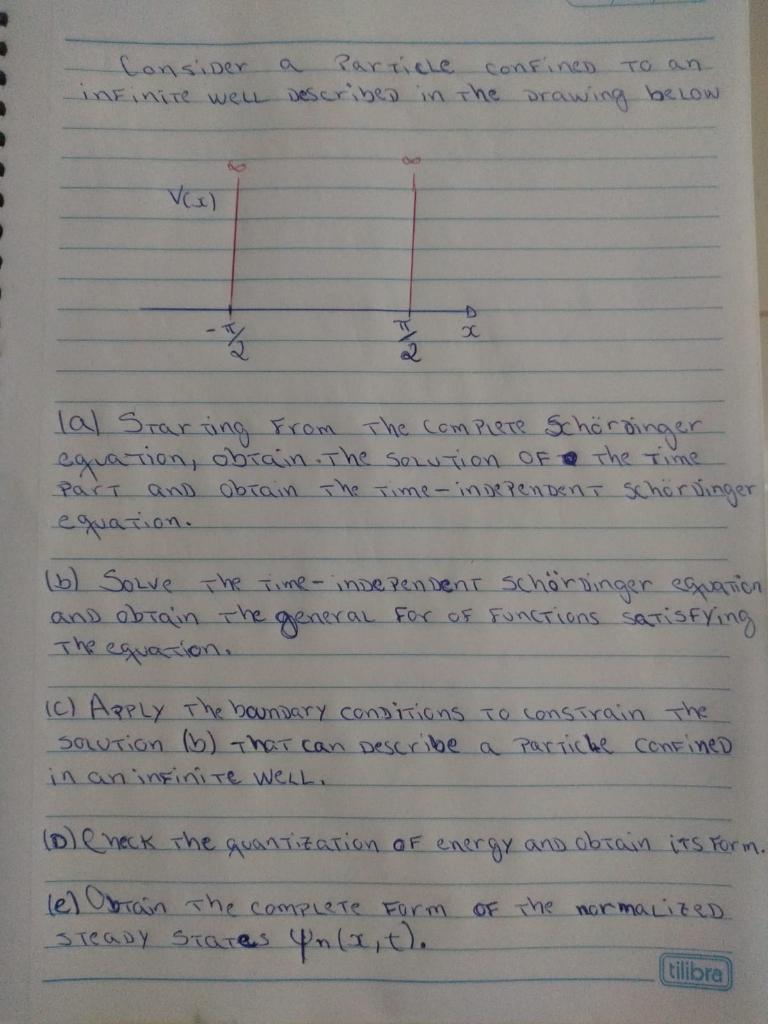 Consider a Particle confined to an
infinite well described in the drawing below
∞ ∞
V(x)
-π/2 π/2 x
(a) Starting from the complete Schördinger
equation, obtain the solution of the time
part and obtain the time-independent Schördinger
equation.
(b) Solve the time-independent Schördinger equation
and obtain the general for of functions satisfying
the equation.
(c) Apply the boundary conditions to constrain the
solution (b) that can describe a particle confined
in an infinite well.
(D) Check the quantization of energy and obtain its form.
(e) Obtain the complete form of the normalized
steady states ψn(x,t).
tilibra